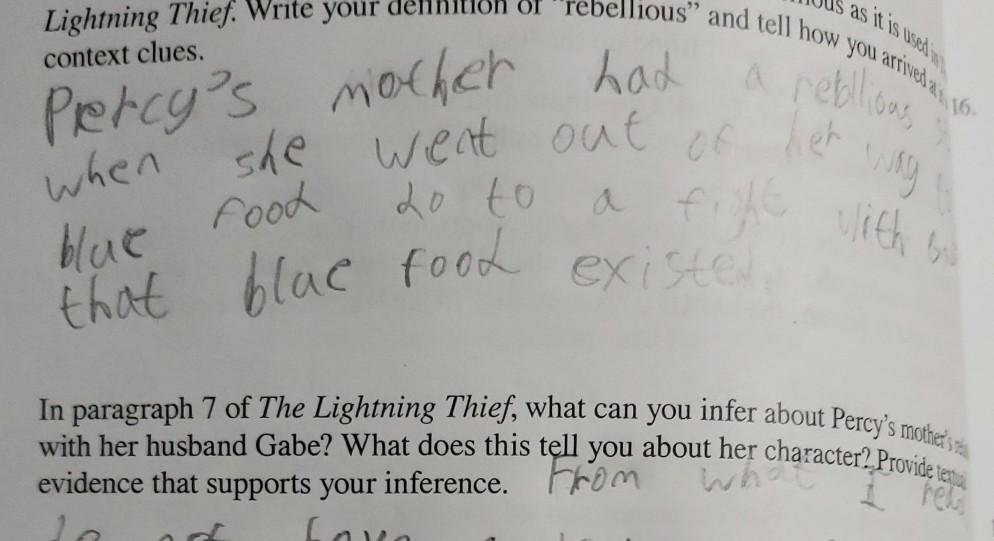 Lightning Thief. Write your definition of "rebellious" and tell how you arrived at it.
as it is used in
16.
context clues.
Pretcy's mother had a rebllious
when she went out of her way
blue food do to a fight with
that blue food existed
In paragraph 7 of The Lightning Thief, what can you infer about Percy's mother's
with her husband Gabe? What does this tell you about her character? Provide textual
evidence that supports your inference. From what I